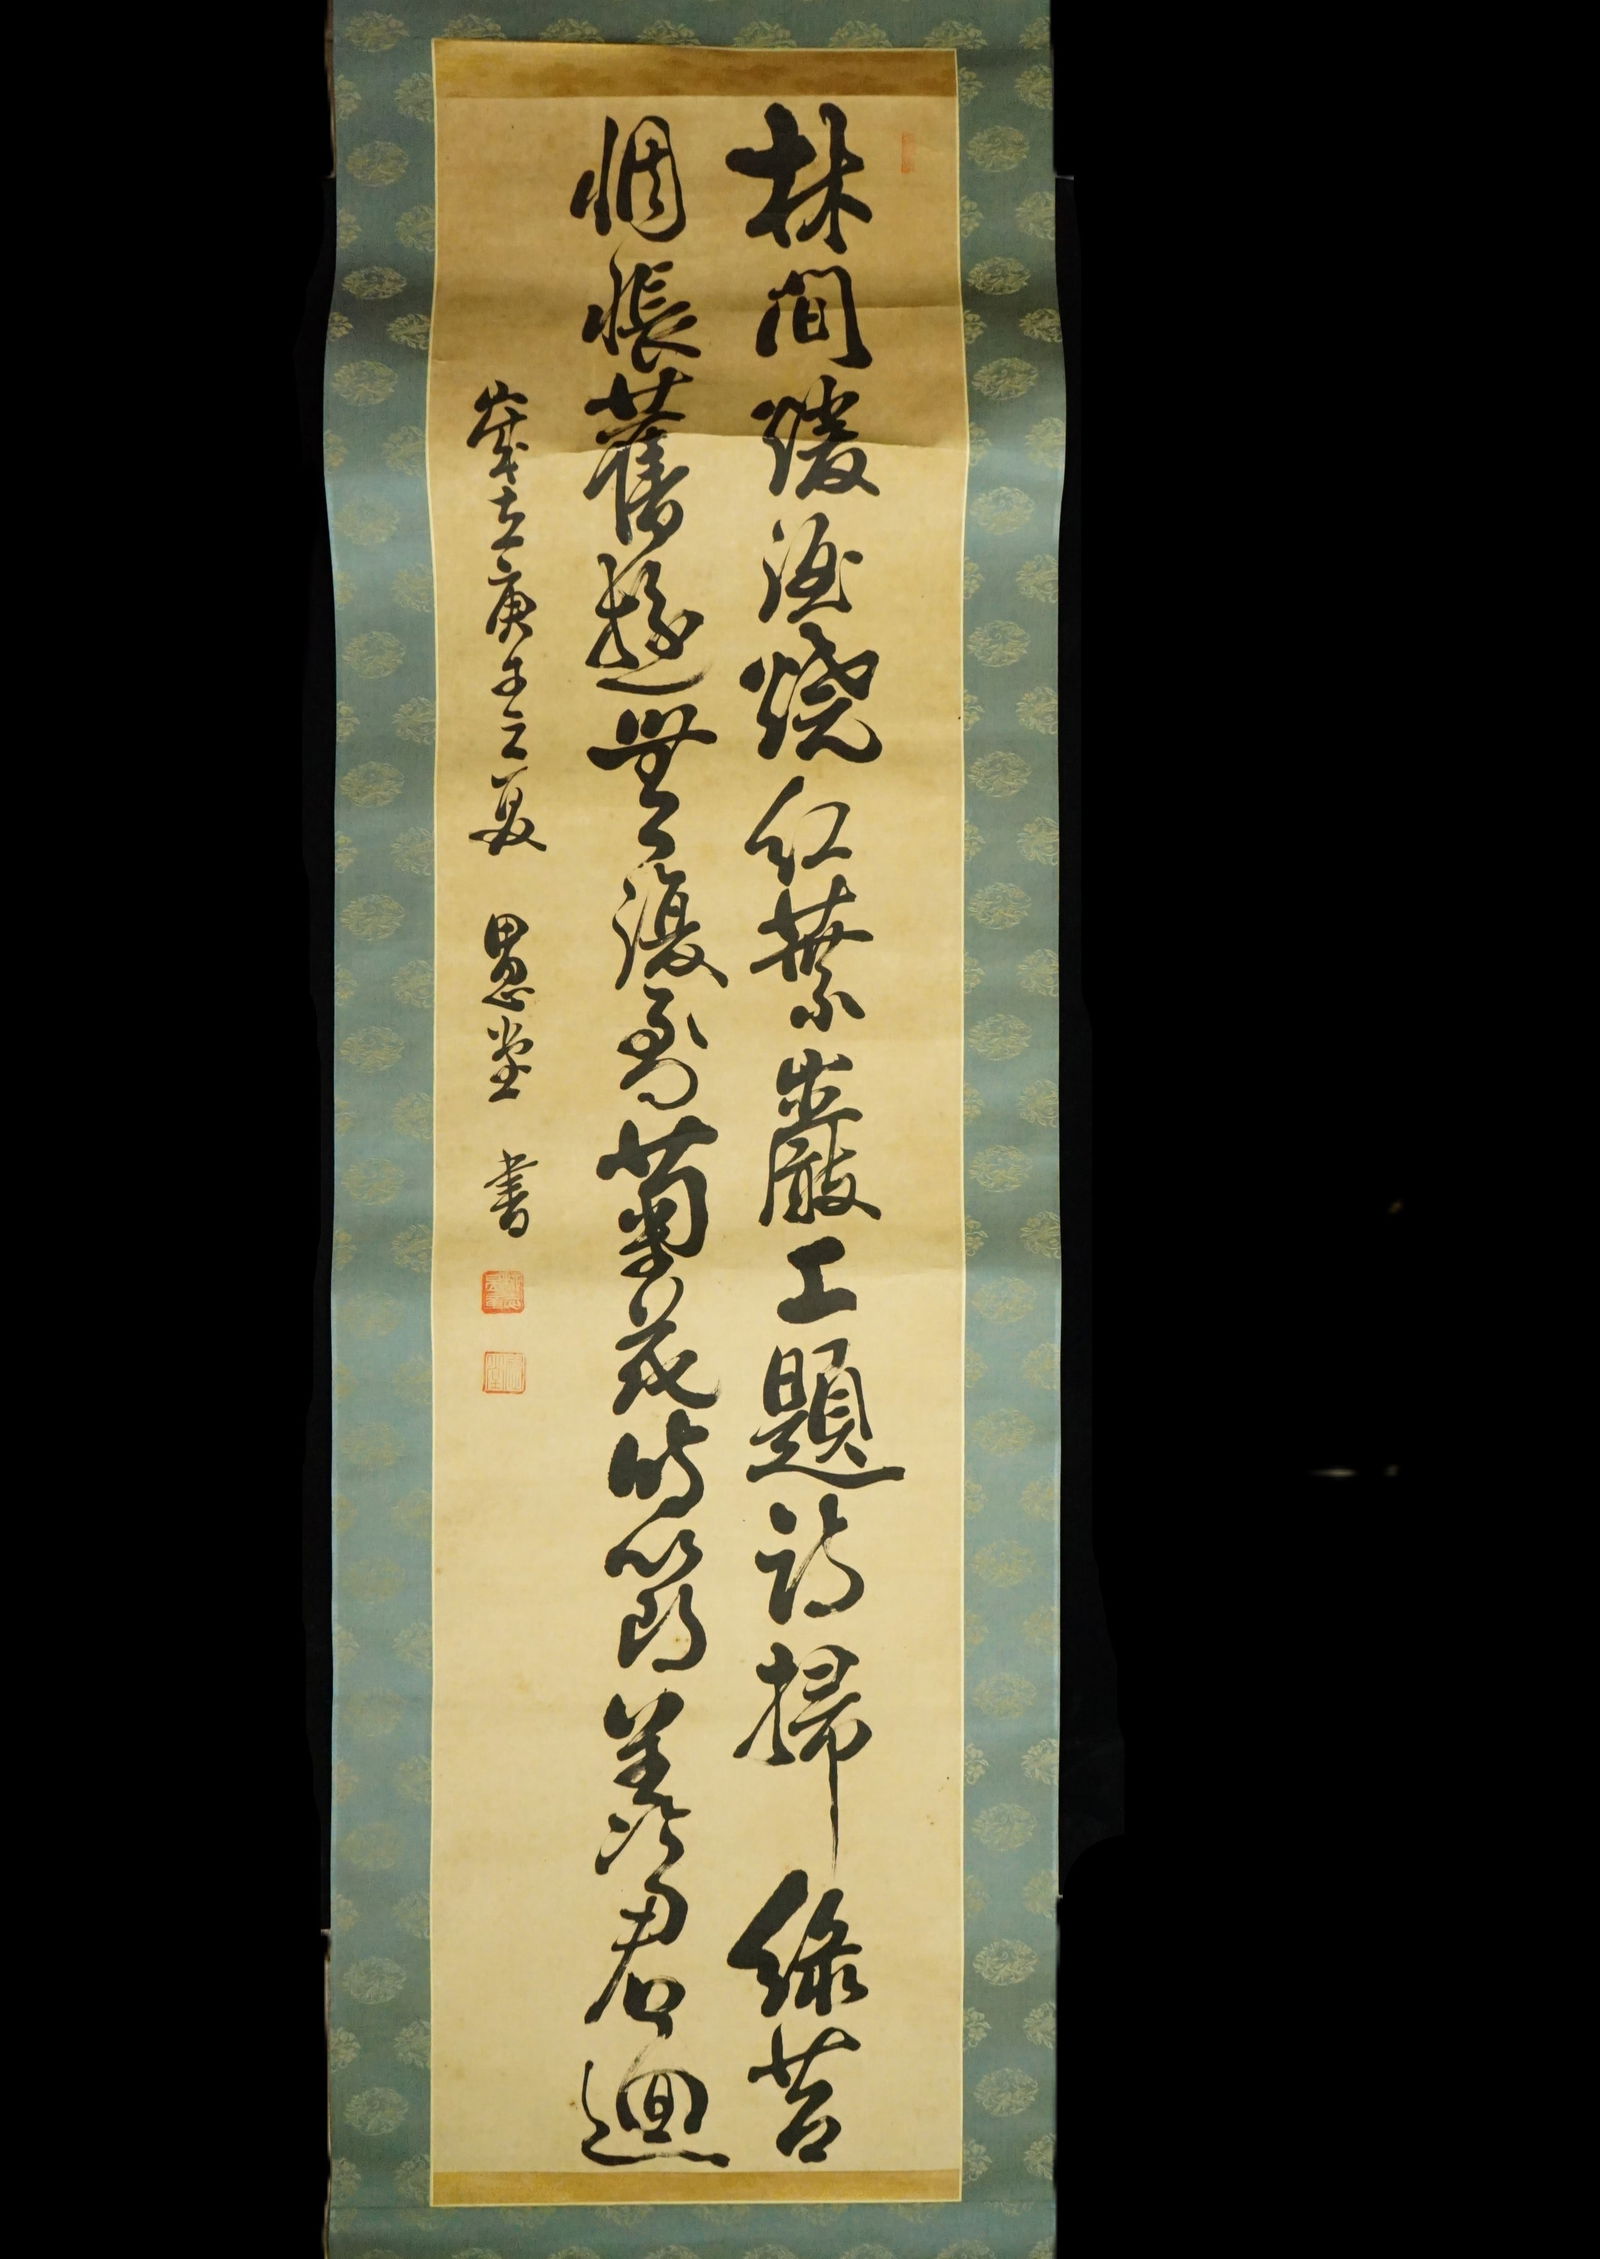 林間煖酒燒紅葉巖上題詩掃綠苔
惆悵舊遊無復到菊花時節羨君迴
歲在庚子之夏 思堂 書